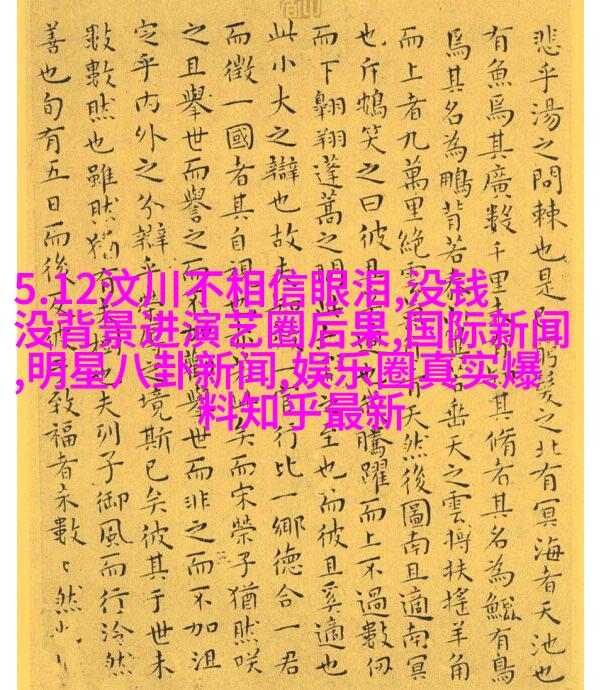 5.12汶川不相信眼泪,没钱
没背景进演艺圈后果,国际新闻
,明星八卦新闻,娱乐圈真实爆
料知乎最新
悲乎湯之問棘也是窮髮之北有冥海者天池也
有魚焉其廣數千里未有其脩者其名為鯤有鳥
焉其名為鵬背若垂天之雲搏扶搖羊角
而上者九萬里絕雲天然後圖南且適南冥
也斥鴳笑之曰彼且騰躍而上不過數仞
而下翱翔蓬蒿之間至也而彼且奚適也
此小大之辯也故夫官行比一鄉德合一君
而徵一國者其自視矣而宋榮子猶然咲
之且舉世而譽之而舉世而非之而不加沮
定乎内外之分辯乎榮之境斯已矣彼其于世未
數數然也雖然猶有未樹也夫列子御風而行泠然
善也旬有五日而後反致福者未數〻然也